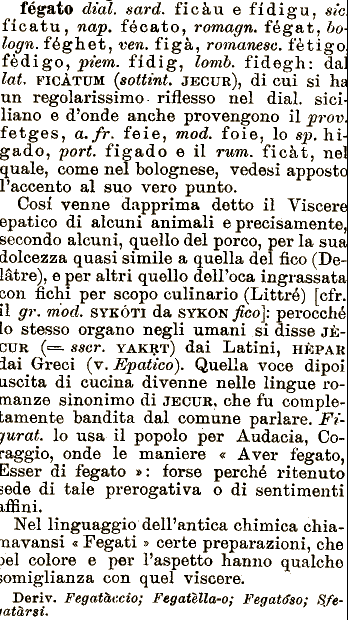 fégato dial. sard. ficàu e fídigu, sic.
fícatu, nap. fécato, romagn. fégat, bo-
logn. féghet, ven. figà, romanesc. fètigo,
fèdigo, piem. fídig, lomb. fidegh: dal
lat. FICÀTUM (sottint. JECUR), di cui si ha
un regolarissimo riflesso nel dial. sici-
liano e d'onde anche provengono il prov.
fetges, a. fr. feie, mod. foie, lo sp. hi-
gado, port. figado e il rum. ficàt, nel
quale, come nel bolognese, vedesi apposto
l'accento al suo vero punto.
Cosí venne dapprima detto il Viscere
epatico di alcuni animali e precisamente,
secondo alcuni, quello del porco, per la sua
dolcezza quasi simile a quella del fico (De-
lâtre), e per altri quello dell'oca ingrassata
con fichi per scopo culinario (Littré) [cfr.
il gr. mod. SYKÓTI da SYKON fico]: perocché
lo stesso organo negli umani si disse JÈ-
CUR (= sscr. YAKṚT) dai Latini, HÈPAR
dai Greci (v. Epatico). Quella voce dipoi
uscita di cucina divenne nelle lingue ro-
manze sinonimo di JECUR, che fu comple-
tamente bandita dal comune parlare. Fi-
gurat. lo usa il popolo per Audacia, Co-
raggio, onde le maniere « Aver fegato,
Esser di fegato »: forse perché ritenuto
sede di tale prerogativa o di sentimenti
affini.
Nel linguaggio dell'antica chimica chia-
mavansi « Fegati » certe preparazioni, che
pel colore e per l'aspetto hanno qualche
somiglianza con quel viscere.
Deriv. Fegatàccio; Fegatèlla-o; Fegatóso; Sfe-
gatàrsi.